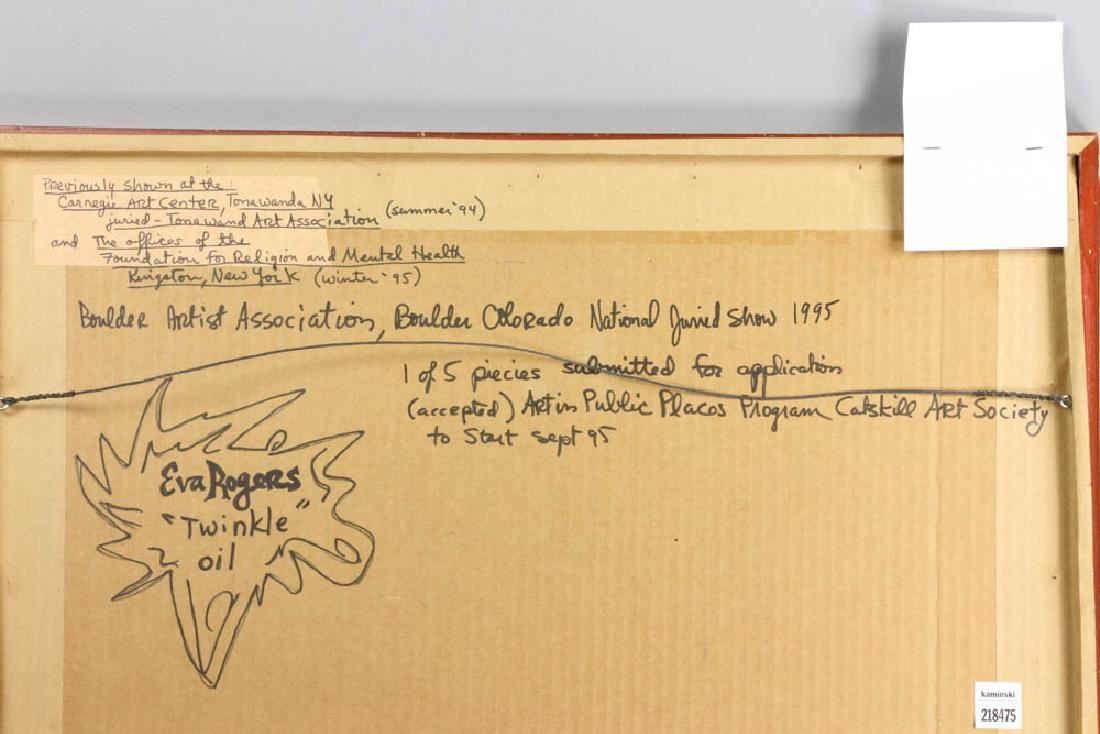 Previously shown at the:
Carnegie Art Center, Tonawanda NY
juried - Tonawand Art Association (summer '94)
and The offices of the
Foundation for Religion and Mental Health
Kingston, New York (winter '95)
Boulder Artist Association, Boulder Colorado National Juried Show 1995
1 of 5 piecies submitted for application
(accepted) Art in Public Places Program Catskill Art Society
to Start Sept 95
Eva Rogers
"Twinkle"
oil
kaminski
218475